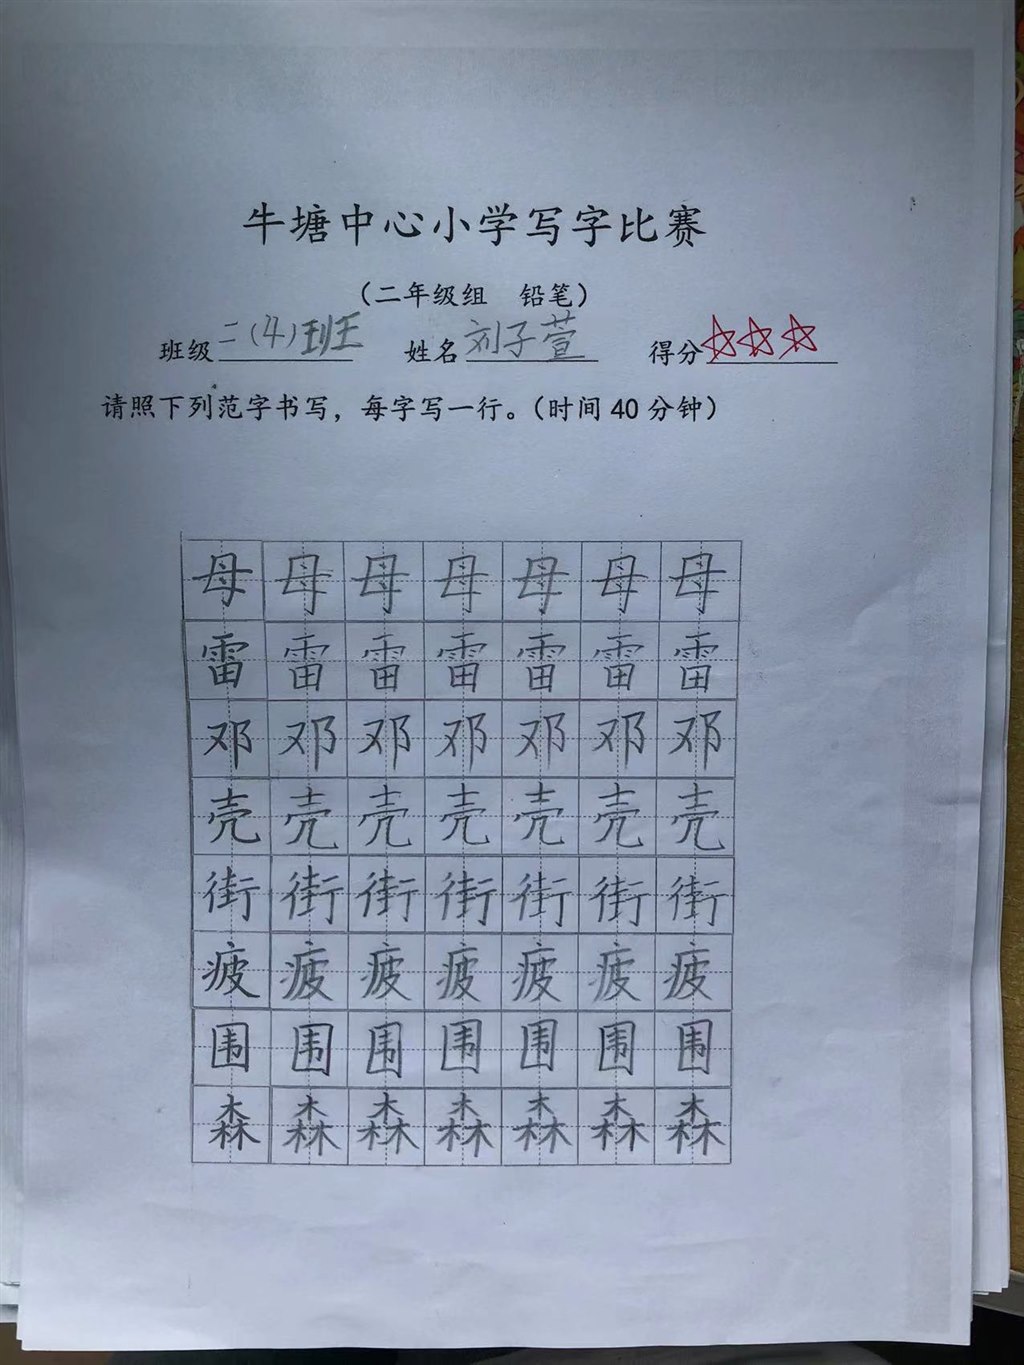 牛塘中心小学写字比赛
（二年级组 铅笔）
班级 二(4)班 姓名 刘子萱 得分
请照下列范字书写，每字写一行。（时间 40 分钟）
母 母 母 母 母 母 母
雷 雷 雷 雷 雷 雷 雷
邓 邓 邓 邓 邓 邓 邓
壳 壳 壳 壳 壳 壳 壳
街 街 街 街 街 街 街
疲 疲 疲 疲 疲 疲 疲
围 围 围 围 围 围 围
森 森 森 森 森 森 森